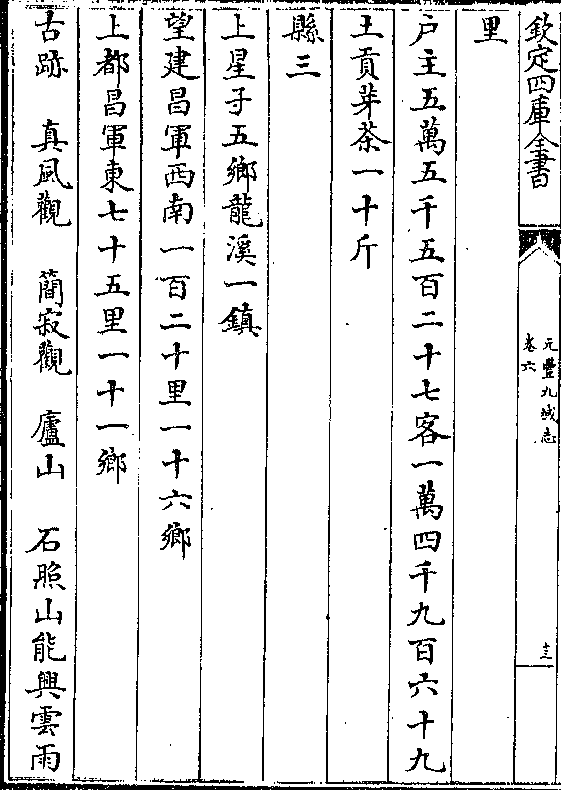 欽定四庫全書
元豐九域志
卷六
十三
里
戶主五萬五千五百二十七客一萬四千九百六十九
土貢芽茶一十斤
縣三
上星子五鄉龍溪一鎮
望建昌軍西南一百二十里一十六鄉
上都昌軍東七十五里一十一鄉
古跡 真風觀 簡寂觀 廬山 石照山能興雲雨